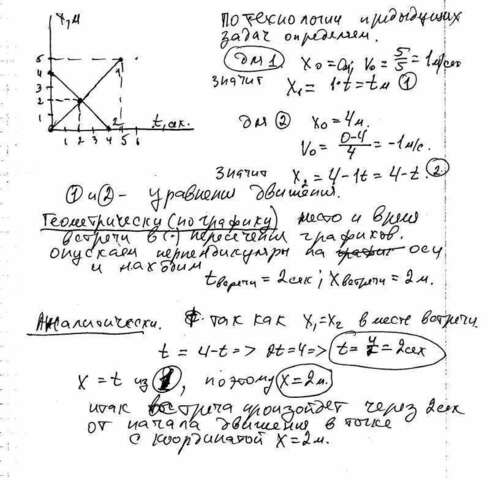 x, м
5
4
3
2
1
1 2 3 4 5 6
t, сек.
1
2
По технологии предыдущих
задач определяем.
для 1 x₀=0м; v₀=5/5=1м/сек
значит x₁= 1·t=tм ①
для ② x₀=4м.
v₀=(0-4)/4=-1м/с.
значит x₂=4-1t=4-t. ②
① и ② - уравнения движения.
Геометрически (по графику) место и время
встречи в (·) пересечения графиков.
опускаем перпендикуляры на осу
и находим
tвстречи=2сек; Xвстречи=2м.
Аналитически. так как x₁=x₂ в месте встречи
t=4-t=>2t=4=> t=4/2=2сек
x=t из 1, поэтому x=2м.
итак встреча произойдет через 2сек
от начала движения в точке
с координатой x=2м.